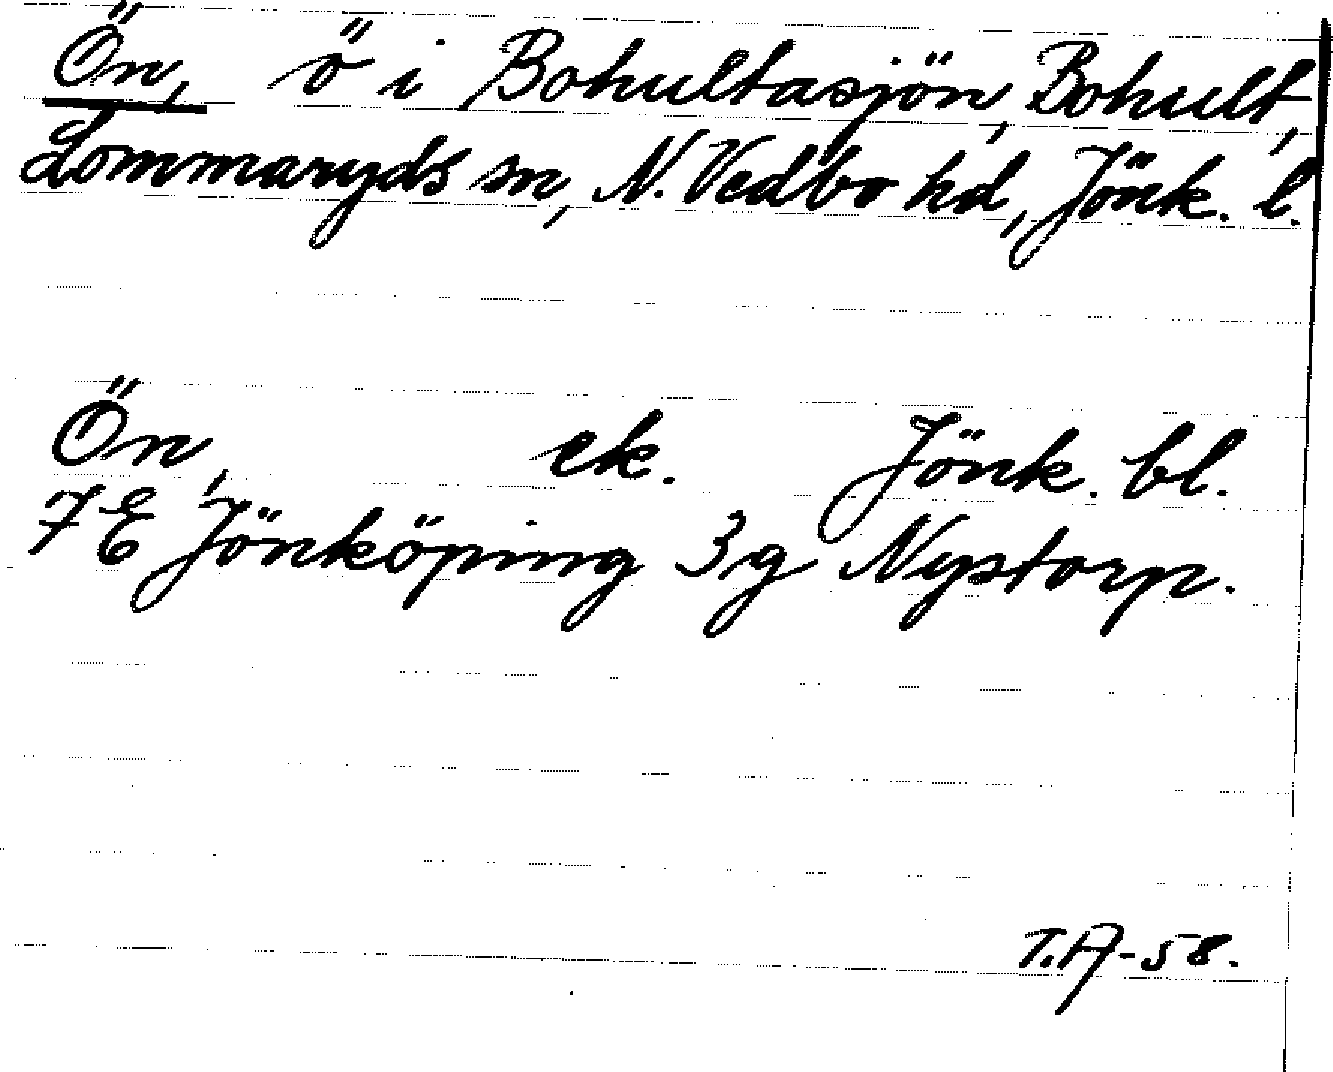 Ön, ö i Bohultasjön, Bohult,
Lommaryds sn, N. Vedbo hd, Jönk. l.
Ön, ek. Jönk. bl.
7E Jönköping 3g Nystorp.
T.A-58.